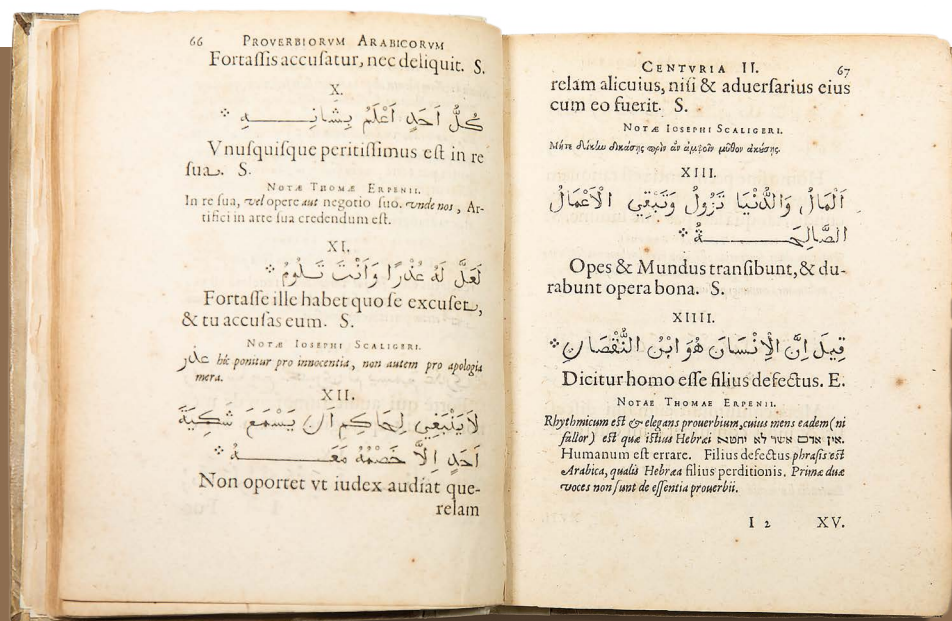 66 PROVERBIORVM ARABICORVM
Fortassis accusatur, nec deliquit. S.
X.
كُلُّ اَحَدٍ اَعْلَمُ بِشَانِـــهِ
Vnusquisque peritissimus est in re
sua. S.
NOTÆ THOMÆ ERPENII.
In re sua, vel opere aut negotio suo. vnde nos, Ar-
tifici in arte sua credendum est.
XI.
لَعَلَّ لَهُ عُذْرًا وَاَنْتَ تَـلُومُ
Fortasse ille habet quo se excuset,
& tu accusas eum. S.
NOTÆ IOSEPHI SCALIGERI.
عذر hic ponitur pro innocentia, non autem pro apologia
mera.
XII.
لَايَنْبَغِي لِحَاكِمٍ اَنْ يَسْمَعَ شَكِيَّةَ
اَحَدٍ اِلَّا خَصْمُهُ مَعَـــهُ
Non oportet vt iudex audiat que-
relam
CENTVRIA II. 67
relam alicuius, nisi & aduersarius eius
cum eo fuerit. S.
NOTÆ IOSEPHI SCALIGERI.
Μήτε δίκην δικάσης πρὶν ἂν ἀμφοῖν μῦθον ἀκούσης.
XIII.
اَلْمَالُ وَالدُّنْيَا تَزُولُ وَتَبْقِي الْاَعْمَالُ
الصَّالِحَـــةُ
Opes & Mundus transibunt, & du-
rabunt opera bona. S.
XIIII.
قِيلَ اِنَّ الْاِنْسَانَ هُوَ ابْنُ النُّقْصَانِ
Dicitur homo esse filius defectus. E.
NOTAE THOMAE ERPENII.
Rhythmicum est & elegans prouerbium, cuius mens eadem (ni
fallor) est quæ istius Hebræi אין אדם אשר לא יחטא.
Humanum est errare. Filius defectus phrasis est
Arabica, qualis Hebræa filius perditionis. Primæ duæ
voces non sunt de essentia prouerbii.
I 2 XV.